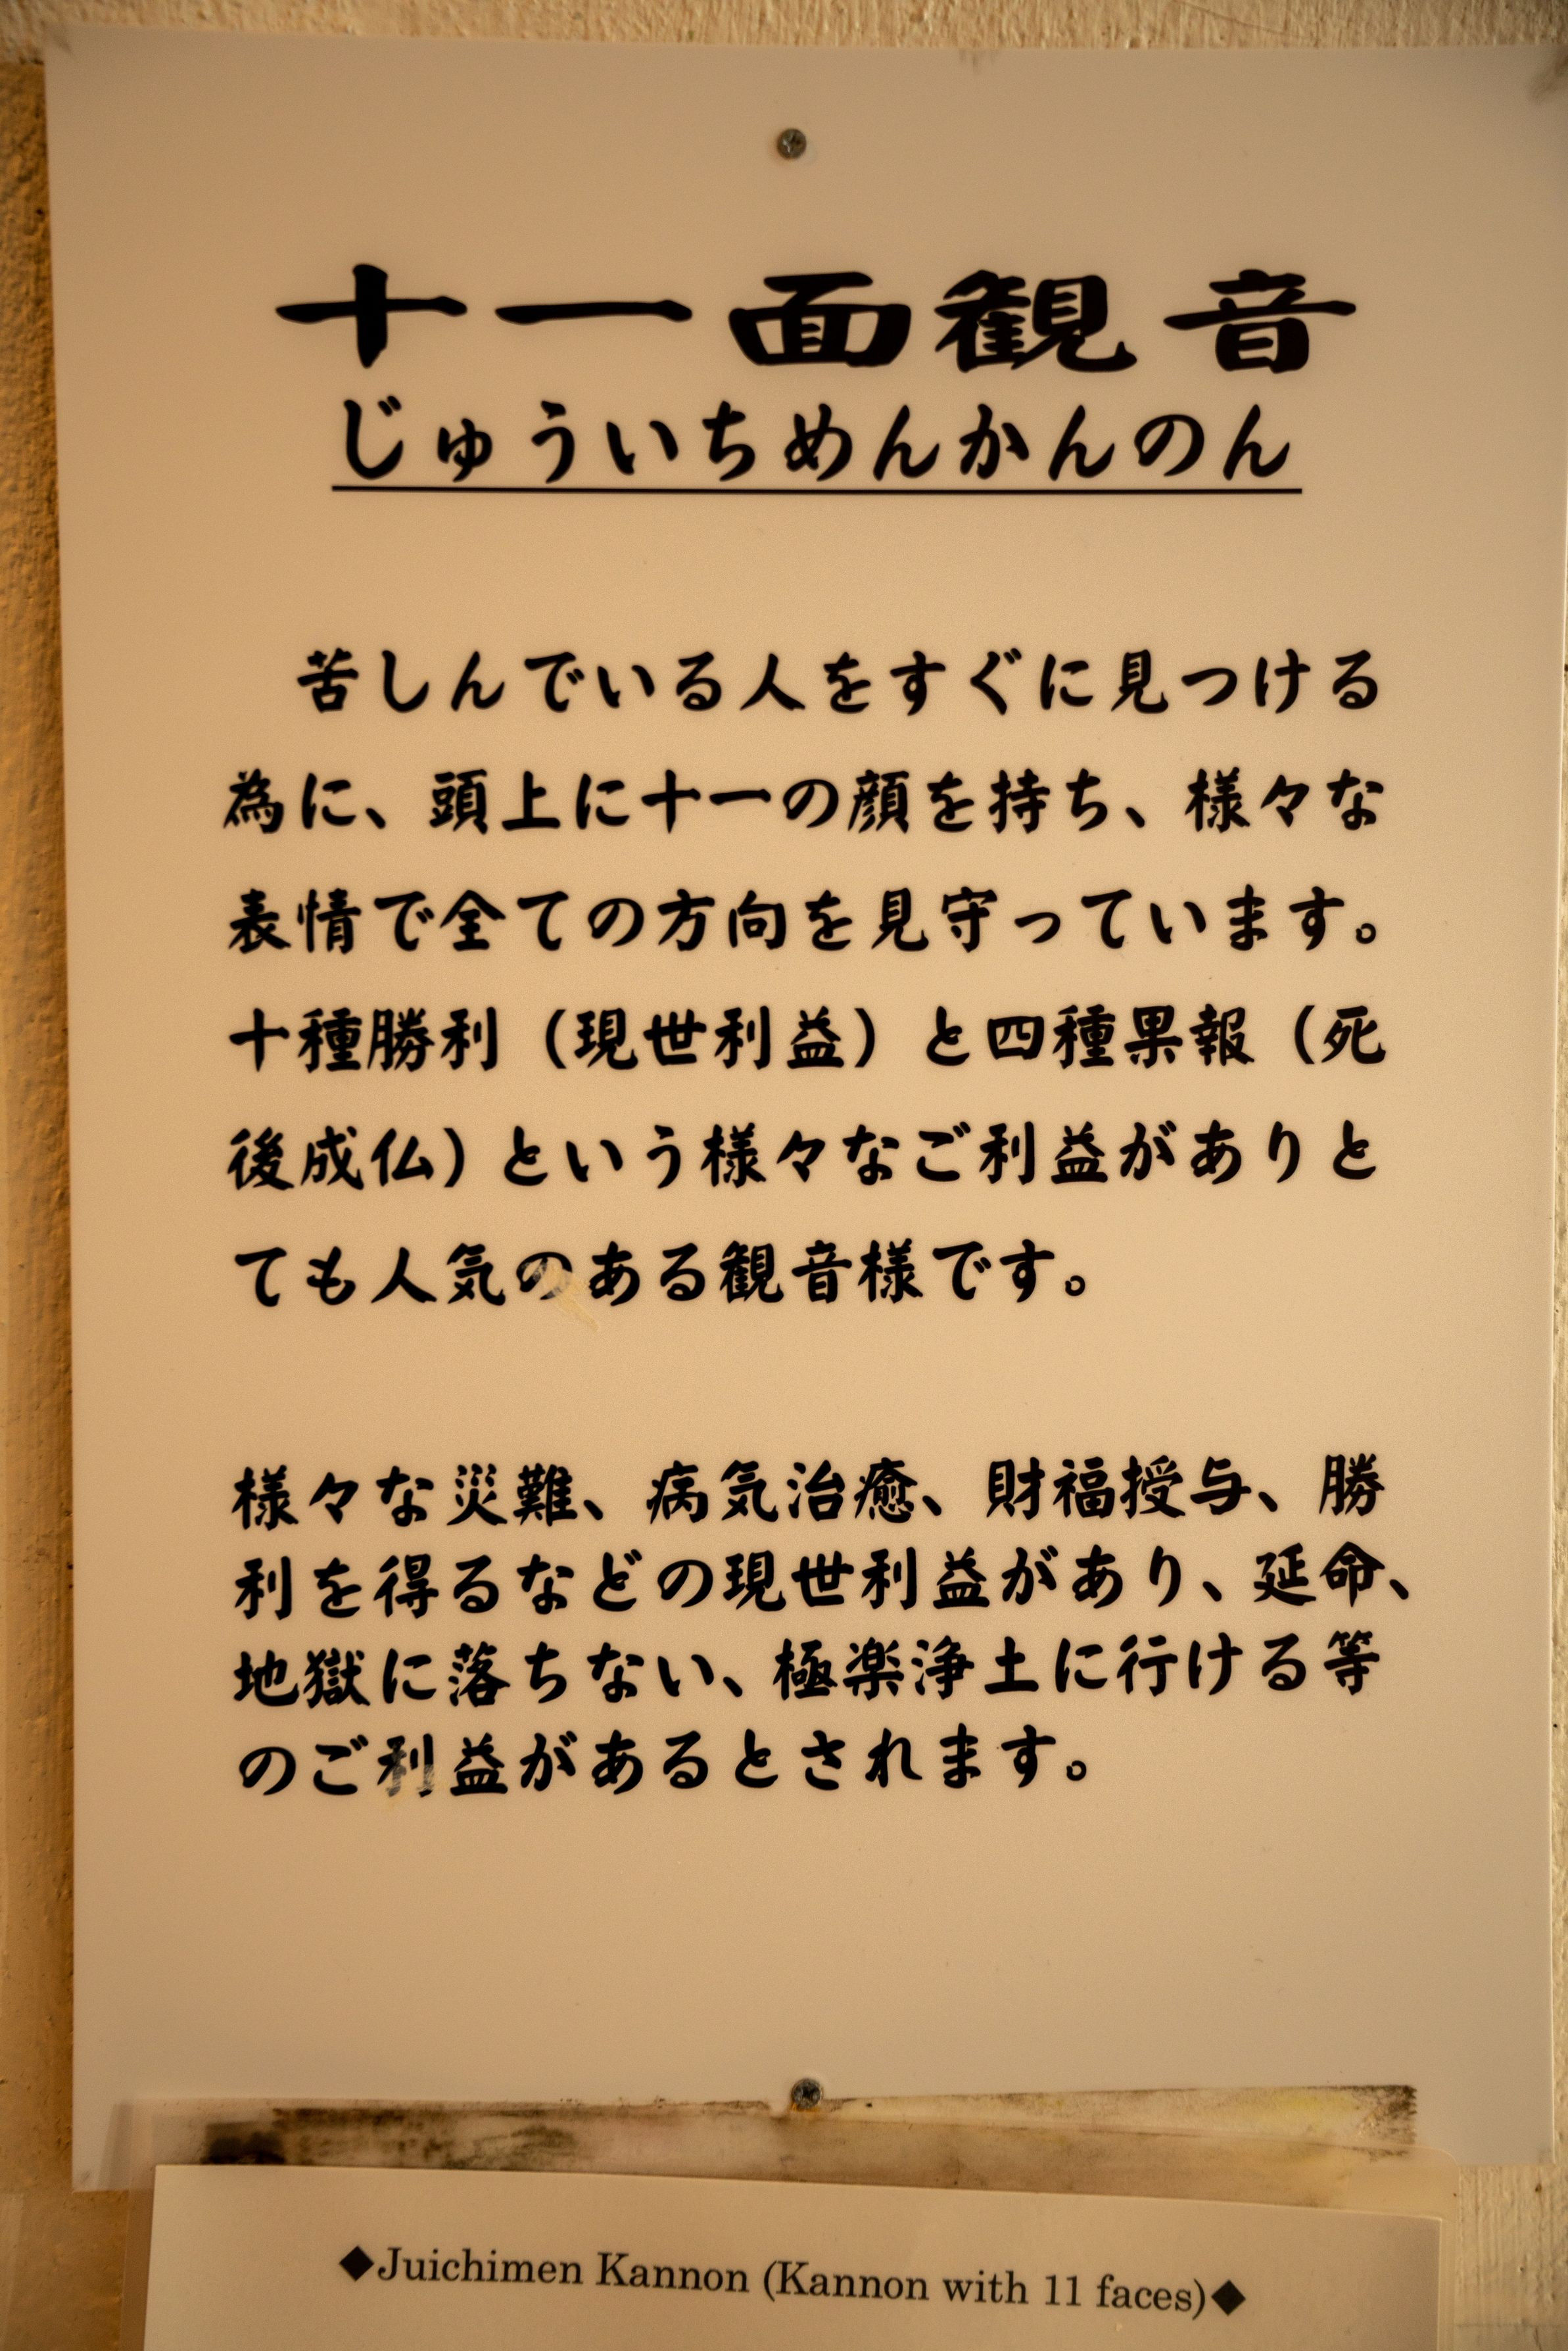 十一面観音
じゅういちめんかんのん
苦しんでいる人をすぐに見つける
為に、頭上に十一の顔を持ち、様々な
表情で全ての方向を見守っています。
十種勝利（現世利益）と四種果報（死
後成仏）という様々なご利益がありと
ても人気のある観音様です。
様々な災難、病気治癒、財福授与、勝
利を得るなどの現世利益があり、延命、
地獄に落ちない、極楽浄土に行ける等
のご利益があるとされます。
◆Juichimen Kannon (Kannon with 11 faces)◆